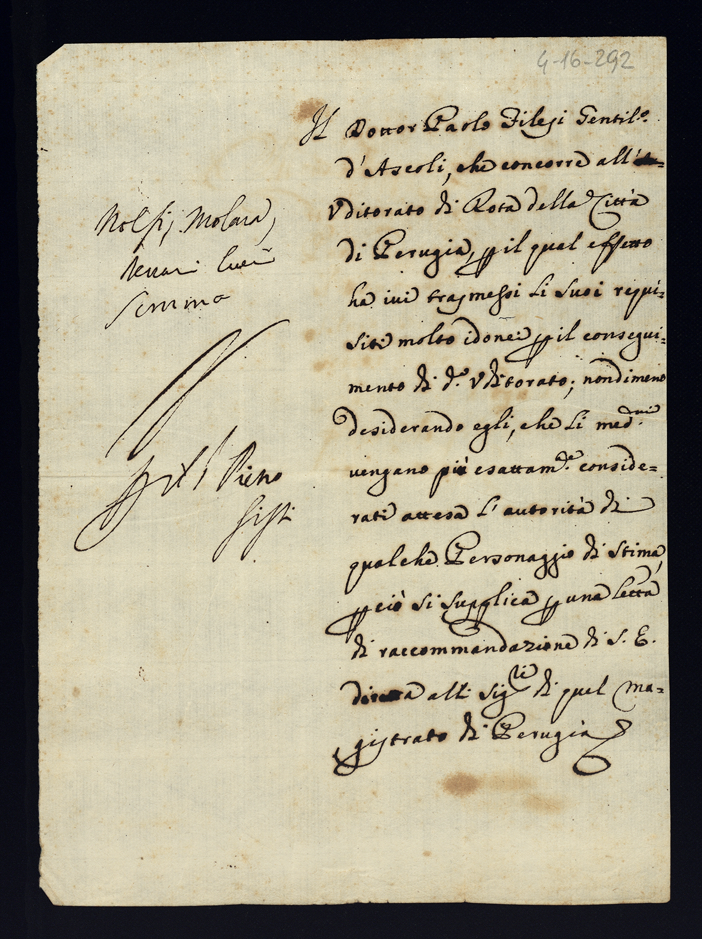 4-16-292
Il Dottor Paolo Filesi Gentil.o
d'Ascoli, che concorre all'
Vditorato di Rota della Città
di Perugia, p il qual effetto
ha ivi trasmessi li suoi requi=
siti molto idonei p il consegui=
mento di d.o Vditorato; nondimeno
desiderando egli, che li med.mi
vengano più esattam.te conside=
rati attesa l'autorità di
qualche Personaggio di stima,
p ciò si supplica p una lettã
di raccommandazione di S. E.
diretta alli Sig.ri di quel Ma=
gistrato di Perugia
Nolfi, Molara,
Pietro